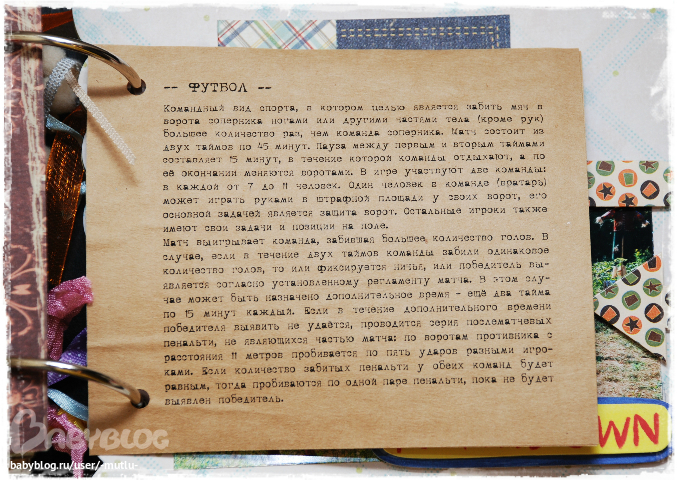 -- ФУТБОЛ --
Командный вид спорта, в котором целью является забить мяч в
ворота соперника ногами или другими частями тела (кроме рук)
большее количество раз, чем команда соперника. Матч состоит из
двух таймов по 45 минут. Пауза между первым и вторым таймами
составляет 15 минут, в течение которой команды отдыхают, а по
её окончании меняются воротами. В игре участвуют две команды:
в каждой от 7 до 11 человек. Один человек в команде (вратарь)
может играть руками в штрафной площади у своих ворот, его
основной задачей является защита ворот. Остальные игроки также
имеют свои задачи и позиции на поле.
Матч выигрывает команда, забившая большее количество голов. В
случае, если в течение двух таймов команды забили одинаковое
количество голов, то или фиксируется ничья, или победитель вы-
является согласно установленному регламенту матча. В этом слу-
чае может быть назначено дополнительное время - ещё два тайма
по 15 минут каждый. Если в течение дополнительного времени
победителя выявить не удаётся, проводится серия послематчевых
пенальти, не являющихся частью матча: по воротам противника с
расстояния 11 метров пробивается по пять ударов разными игро-
ками. Если количество забитых пенальти у обеих команд будет
равным, тогда пробиваются по одной паре пенальти, пока не будет
выявлен победитель.
WN
BABYBLOG
babyblog.ru/user/-mutlu-